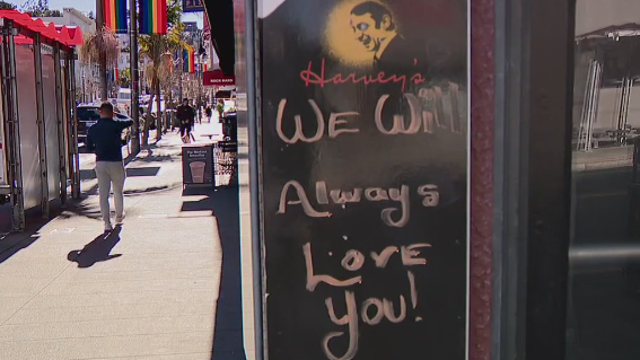 Harvey's
We Will
Always
Love
You!